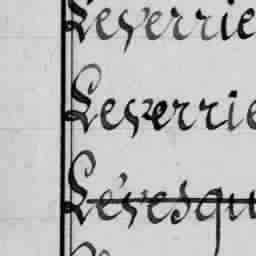 Leverrie
Leverrie
Lévesqu